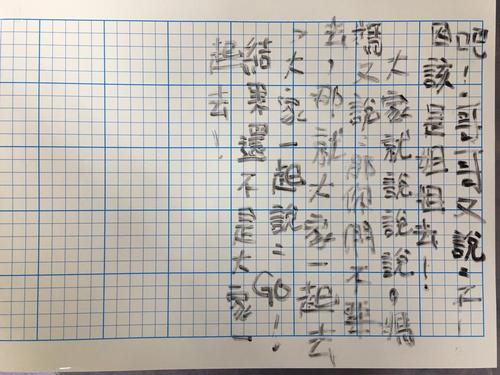 吧！哥哥又說：不
因該是姐姐去！
大家就說說說。媽
媽又說：那不
去，那就大家一起去
，大家一起說：GO！
結果不是大家一
起去！